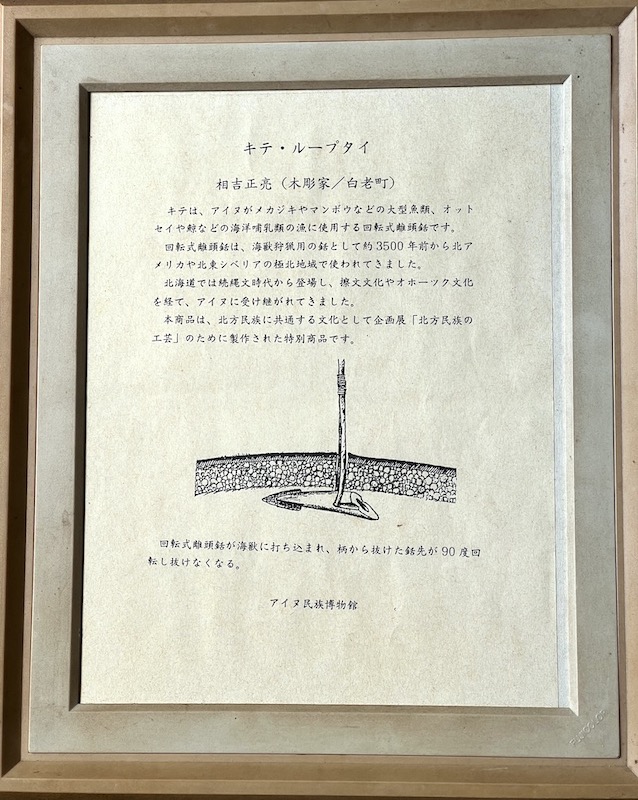 キテ・ループタイ
相吉正亮（木彫家／白老町）
キテは、アイヌがメカジキやマンボウなどの大型魚類、オット
セイや鯨などの海洋哺乳類の漁に使用する回転式離頭銛です。
回転式離頭銛は、海獣狩猟用の銛として約3500年前から北ア
メリカや北東シベリアの極北地域で使われてきました。
北海道では続縄文時代から登場し、擦文文化やオホーツク文化
を経て、アイヌに受け継がれてきました。
本商品は、北方民族に共通する文化として企画展「北方民族の
工芸」のために製作された特別商品です。
回転式離頭銛が海獣に打ち込まれ、柄から抜けた銛先が90度回
転し抜けなくなる。
アイヌ民族博物館